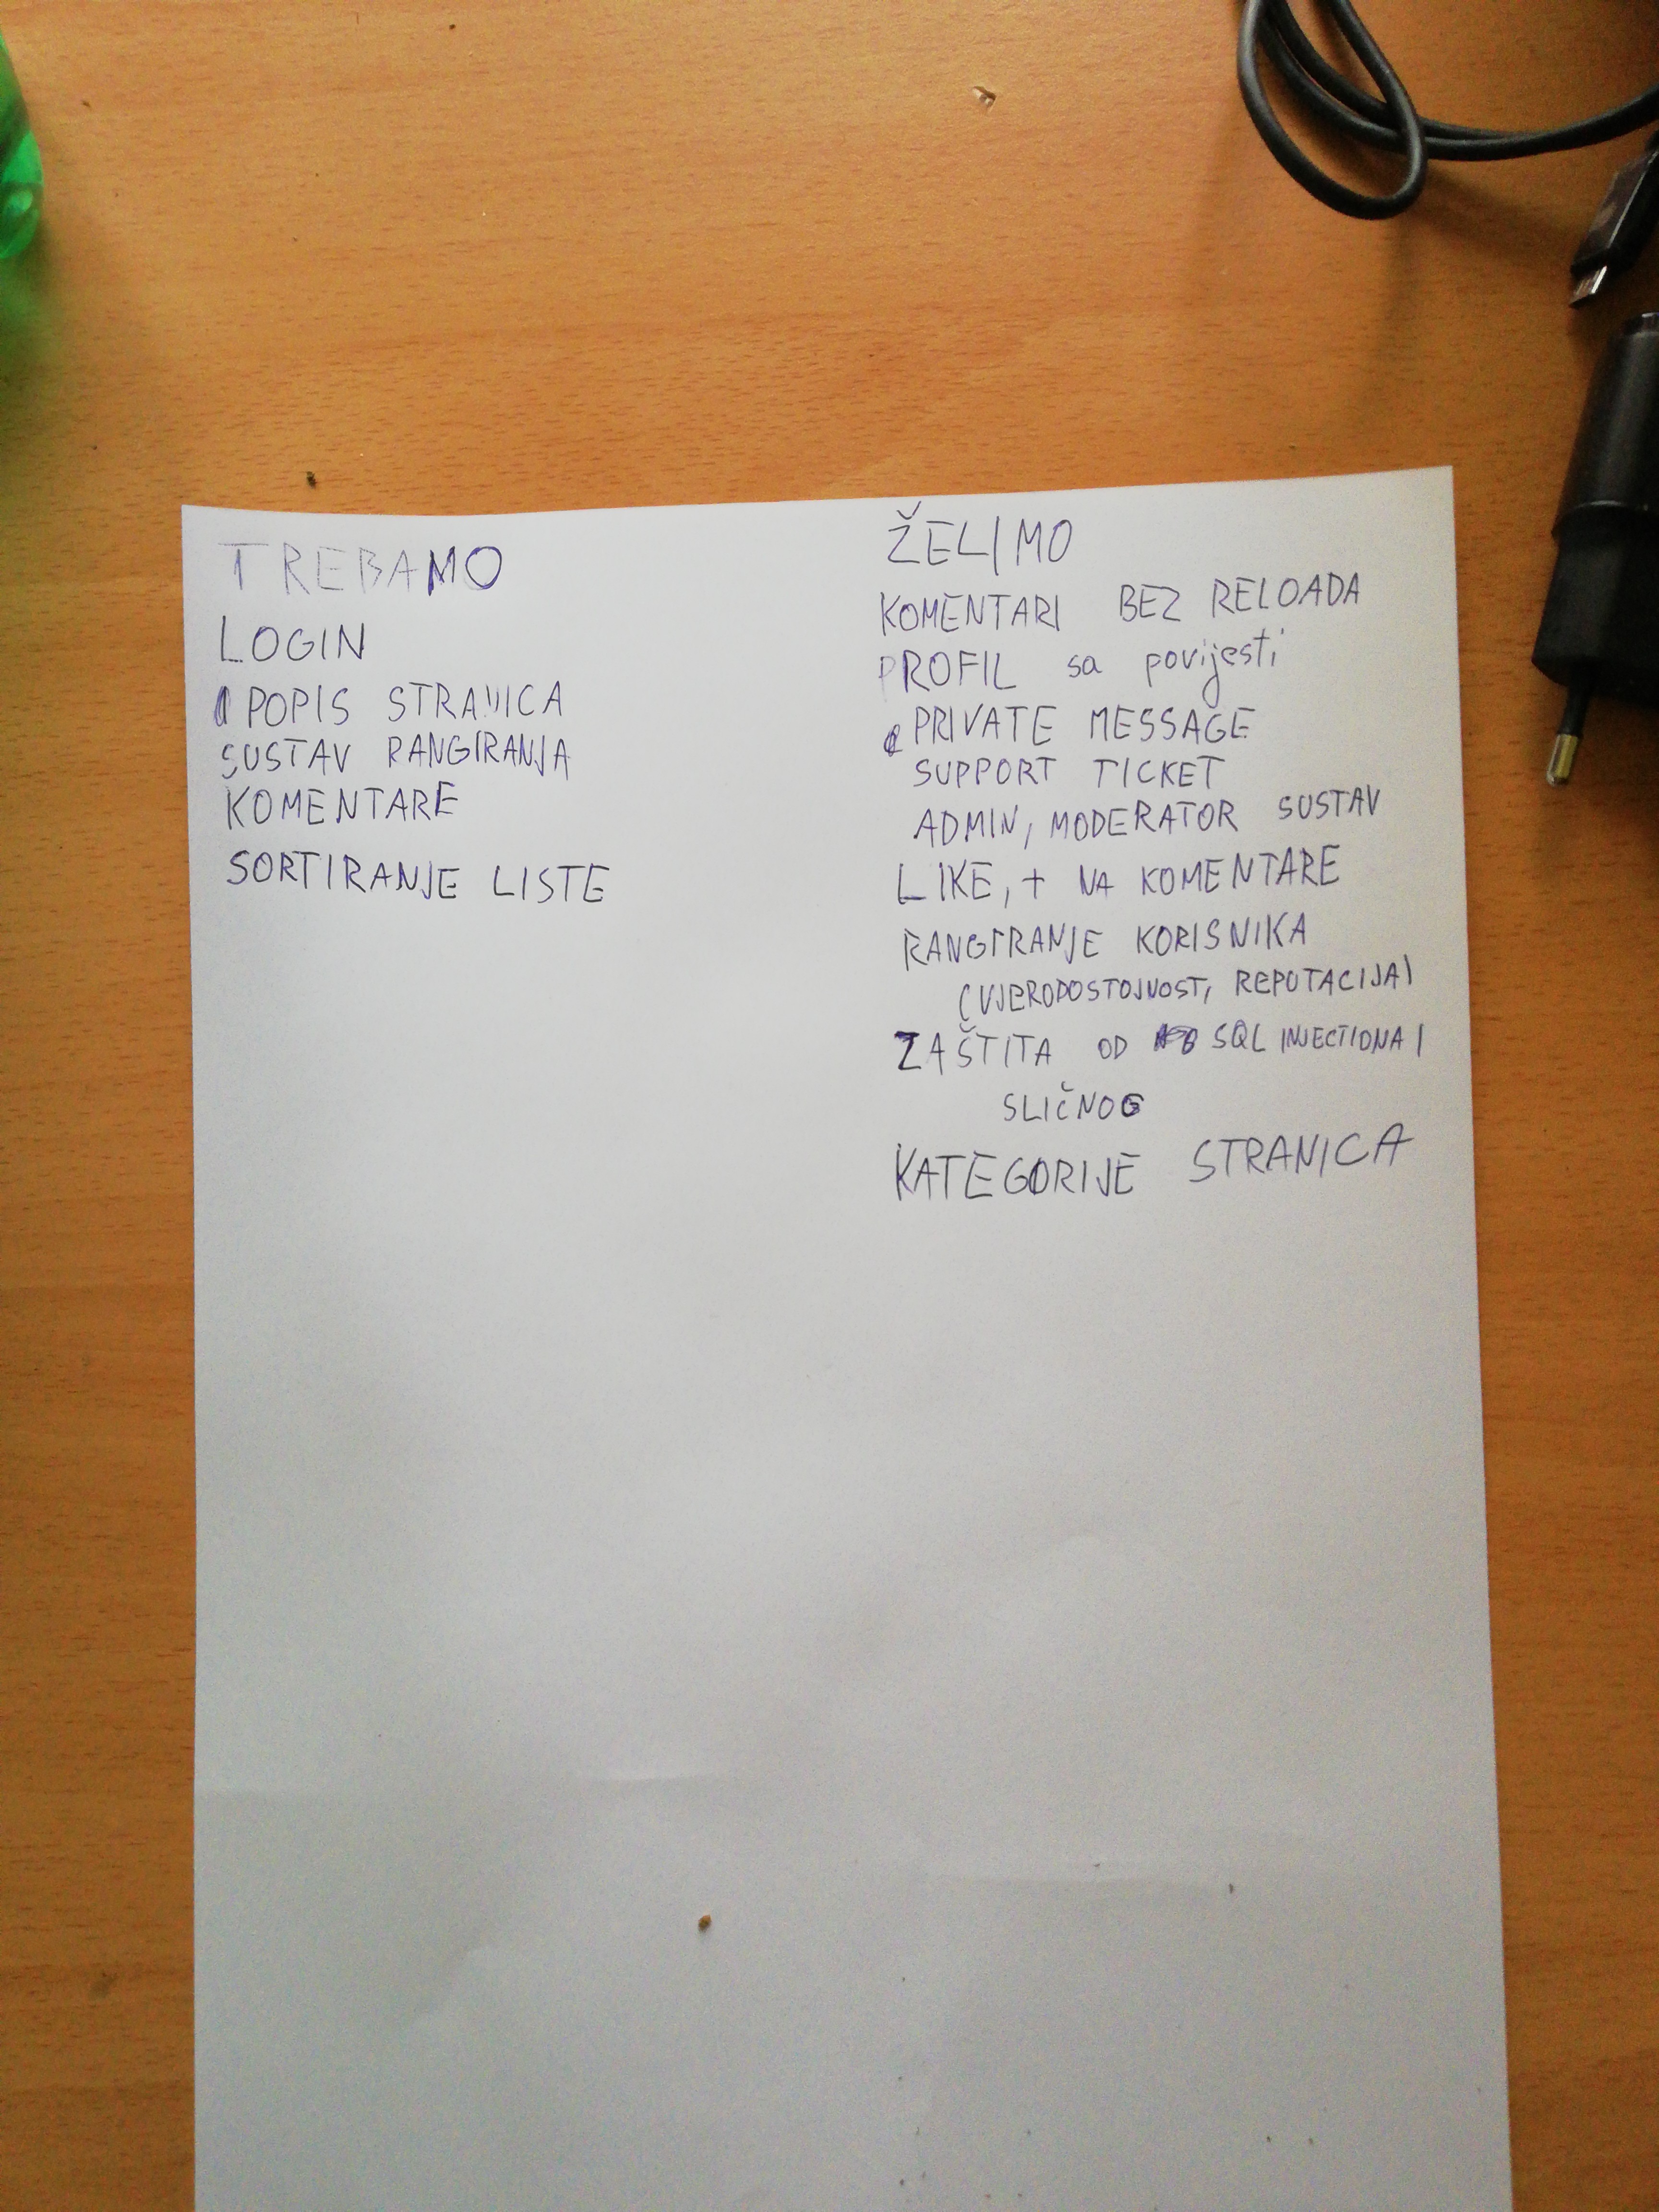 TREBAMO
LOGIN
POPIS STRANICA
SUSTAV RANGIRANJA
KOMENTARE
SORTIRANJE LISTE
ŽELIMO
KOMENTARI BEZ RELOADA
PROFIL sa povijesti
PRIVATE MESSAGE
SUPPORT TICKET
ADMIN, MODERATOR SUSTAV
LIKE, + NA KOMENTARE
RANGIRANJE KORISNIKA
(VJERODOSTOJNOST, REPUTACIJA)
ZAŠTITA OD SQL INJECTIONA I
SLIČNOG
KATEGORIJE STRANICA